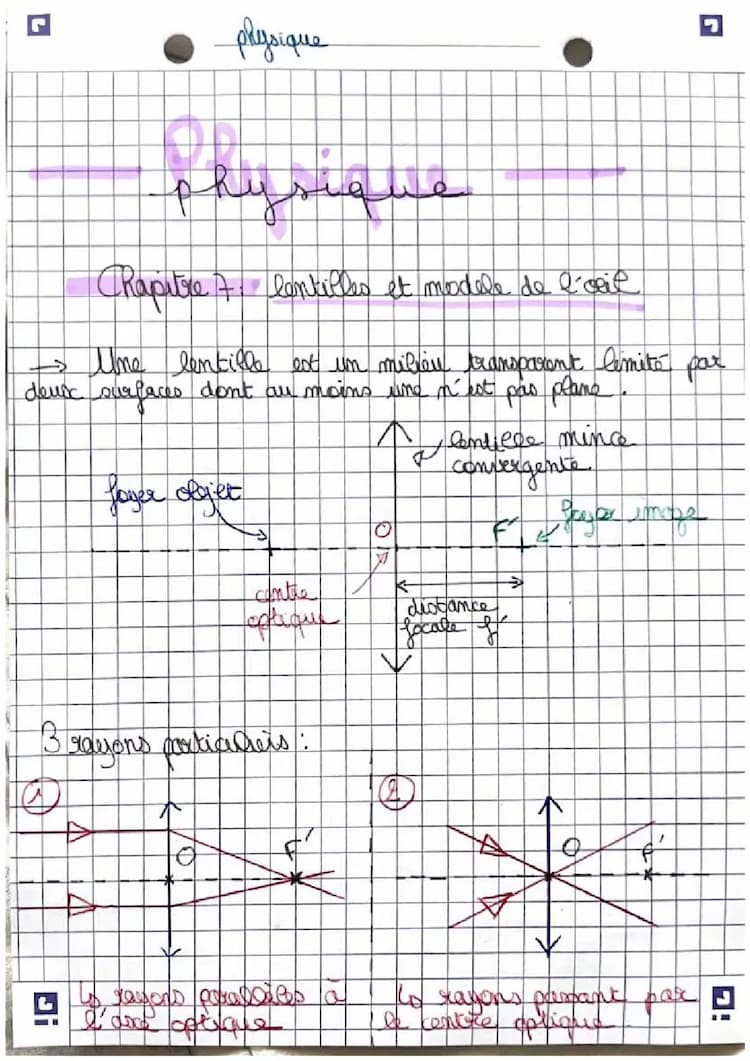 physique
Physique
physique
Chapitre 7: lentilles et modèle de l'œil
→ Une lentille est un milieu transparent limité par
deux surfaces dont au moins une n'est pas plane.
lentille mince
convergente
foyer objet
O
F'
foyer image
centre
optique
distance
focale f'
3 rayons particuliers :
1
2
O
F'
O
F'
↳ rayons parallèles à
l'axe optique
↳ rayons passant par
le centre optique